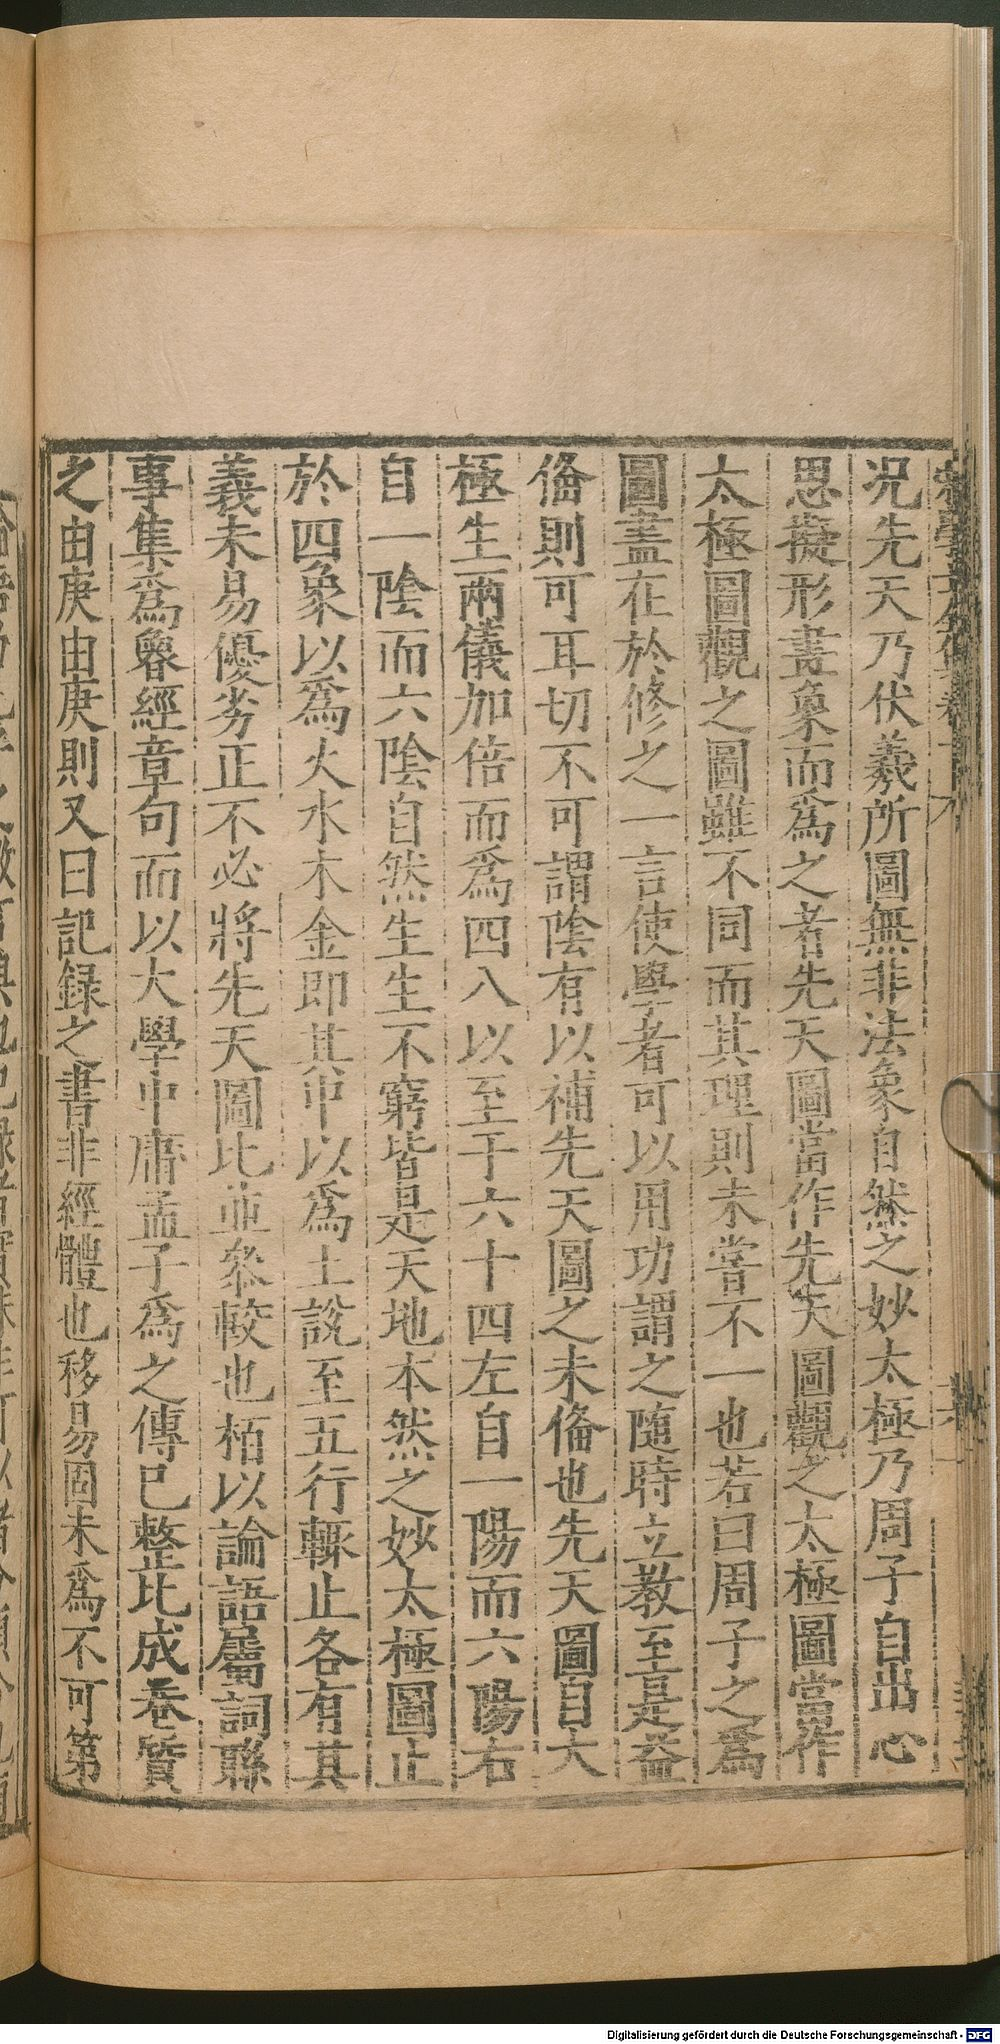 况先天乃伏羲所圖無非法象自然之妙太極乃周子自出心
思擬形畫象而爲之者先天圖當作先天圖觀之太極圖當作
太極圖觀之圖雖不同而其理則未嘗不一也若曰周子之爲
圖盡在於修之一言使學者可以用功謂之隨時立教至是益
俻則可耳切不可謂陰有以補先天圖之未俻也先天圖自太
極生兩儀加倍而爲四八以至于六十四左自一陽而六陽右
自一陰而六陰自然生生不窮皆是天地本然之妙太極圖止
於四象以爲火水木金即其中以爲土說至五行輒止各有其
義未易優劣正不必將先天圖比並叅較也栢以論語屬詞聯
事集爲魯經章句而以大學中庸孟子爲之傳已整比成卷質
之由庚由庚則又曰記録之書非經體也移易固未爲不可第
Digitalisierung gefördert durch die Deutsche Forschungsgemeinschaft - DFG